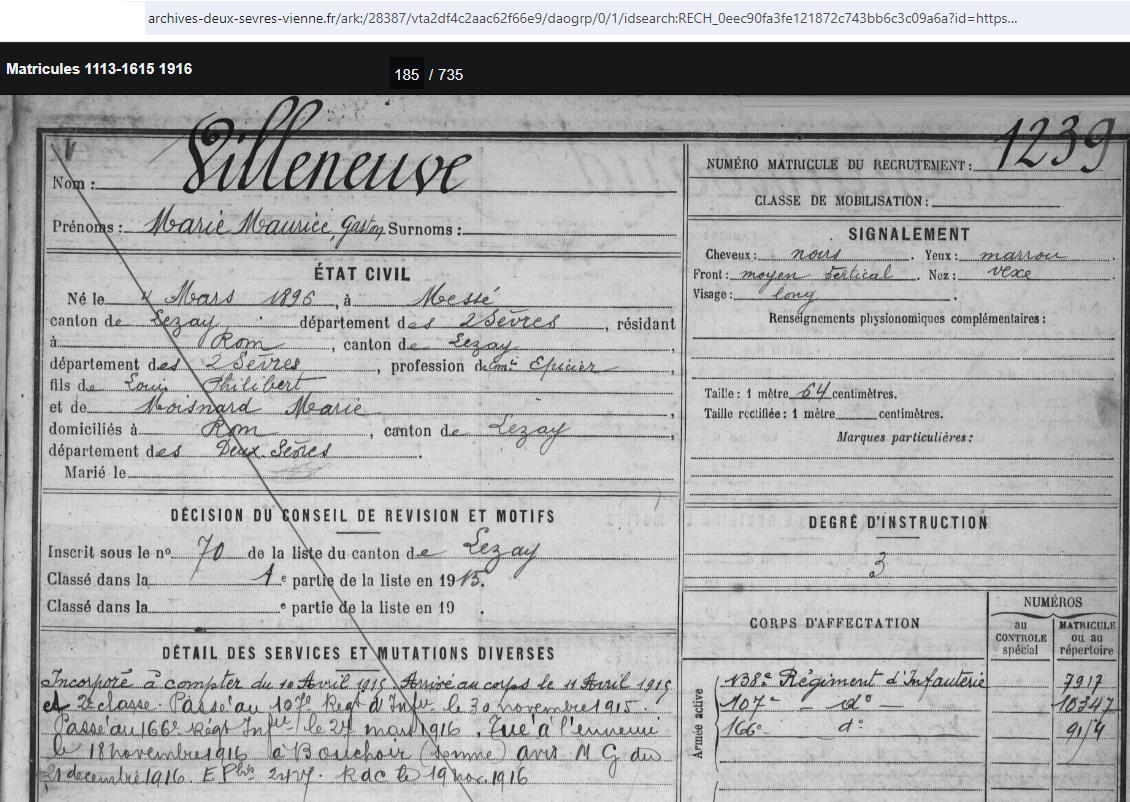 archives-deux-sevres-vienne.fr/ark:/28387/vta2df4c2aac62f66e9/daogrp/0/1/idsearch:RECH_0eec90fa3fe121872c743bb6c3c09a6a?id=https...
Matricules 1113-1615 1916
185 / 735
Nom : Villeneuve
Prénoms : Marie Maurice, Gaston Surnoms :
ÉTAT CIVIL
Né le 4 Mars 1896, à Messé
canton de Lezay département des 2 Sèvres, résidant
à Rom, canton de Lezay,
département des 2 Sèvres, profession de Epicier,
fils de Louis Philibert
et de Moisnard Marie,
domiciliés à Rom, canton de Lezay,
département des Deux Sèvres.
Marié le
DÉCISION DU CONSEIL DE REVISION ET MOTIFS
Inscrit sous le no 70 de la liste du canton de Lezay
Classé dans la 1e partie de la liste en 1915.
Classé dans la e partie de la liste en 19 .
DÉTAIL DES SERVICES ET MUTATIONS DIVERSES
Incorporé à compter du 10 Avril 1915 Arrivé au corps le 11 Avril 1915
et 2e classe. Passé au 107e Regt d'Infie le 30 novembre 1915.
Passé au 166e Régt Infie le 27 mars 1916. Tué à l'ennemi
le 18 novembre 1916 à Bouchoir (Somme) avis M G du
21 decembre 1916. Rdc le 19 nov. 1916
NUMÉRO MATRICULE DU RECRUTEMENT : 1239
CLASSE DE MOBILISATION :
SIGNALEMENT
Cheveux : noirs. Yeux : marron.
Front : moyen vertical. Nez : vexe
Visage : long.
Renseignements physionomiques complémentaires :
Taille : 1 mètre 64 centimètres.
Taille rectifiée : 1 mètre centimètres.
Marques particulières :
DEGRÉ D'INSTRUCTION
3
CORPS D'AFFECTATION
NUMÉROS
au CONTROLE spécial
MATRICULE ou au répertoire
Armée active
138e Régiment d'Infanterie 7917
107e - do - 10347
166e do